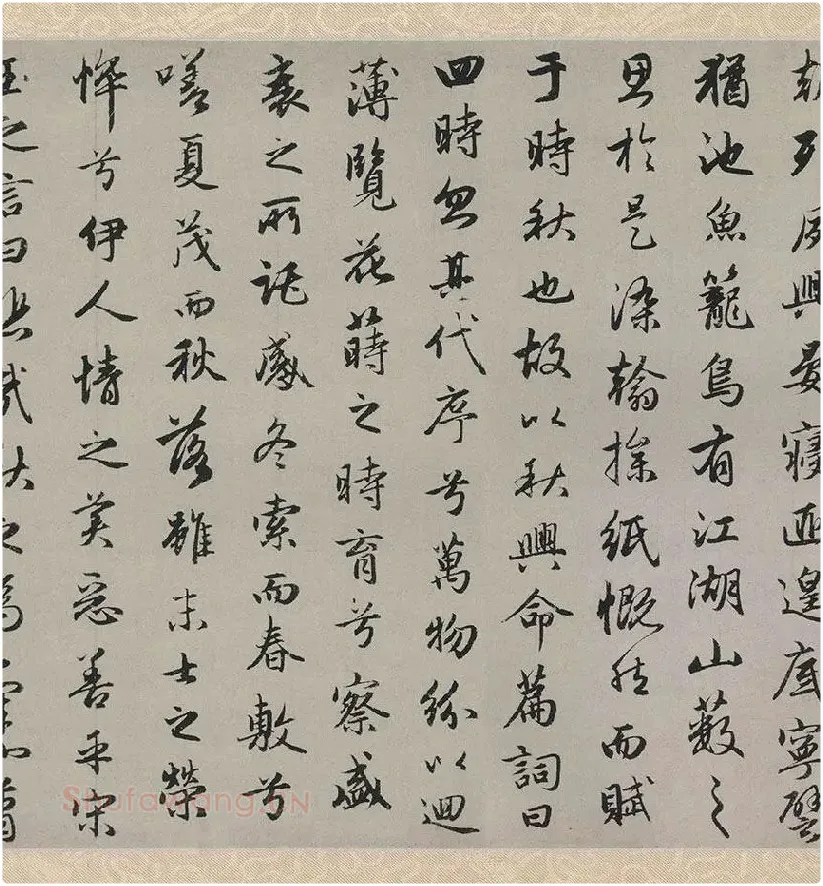 朝列夙興晏寢匪遑底寧譬
猶池魚籠鳥有江湖山藪之
思於是染翰操紙慨然而賦
于時秋也故以秋興命篇詞曰
四時忽其代序兮萬物紛以迴
薄覽花蒔之時育兮察盛
衰之所託感冬索而春敷兮
嗟夏茂而秋落雖末士之榮
悴兮伊人情之美惡善乎宋
玉之言曰悲哉秋之為
Shufawang.CN